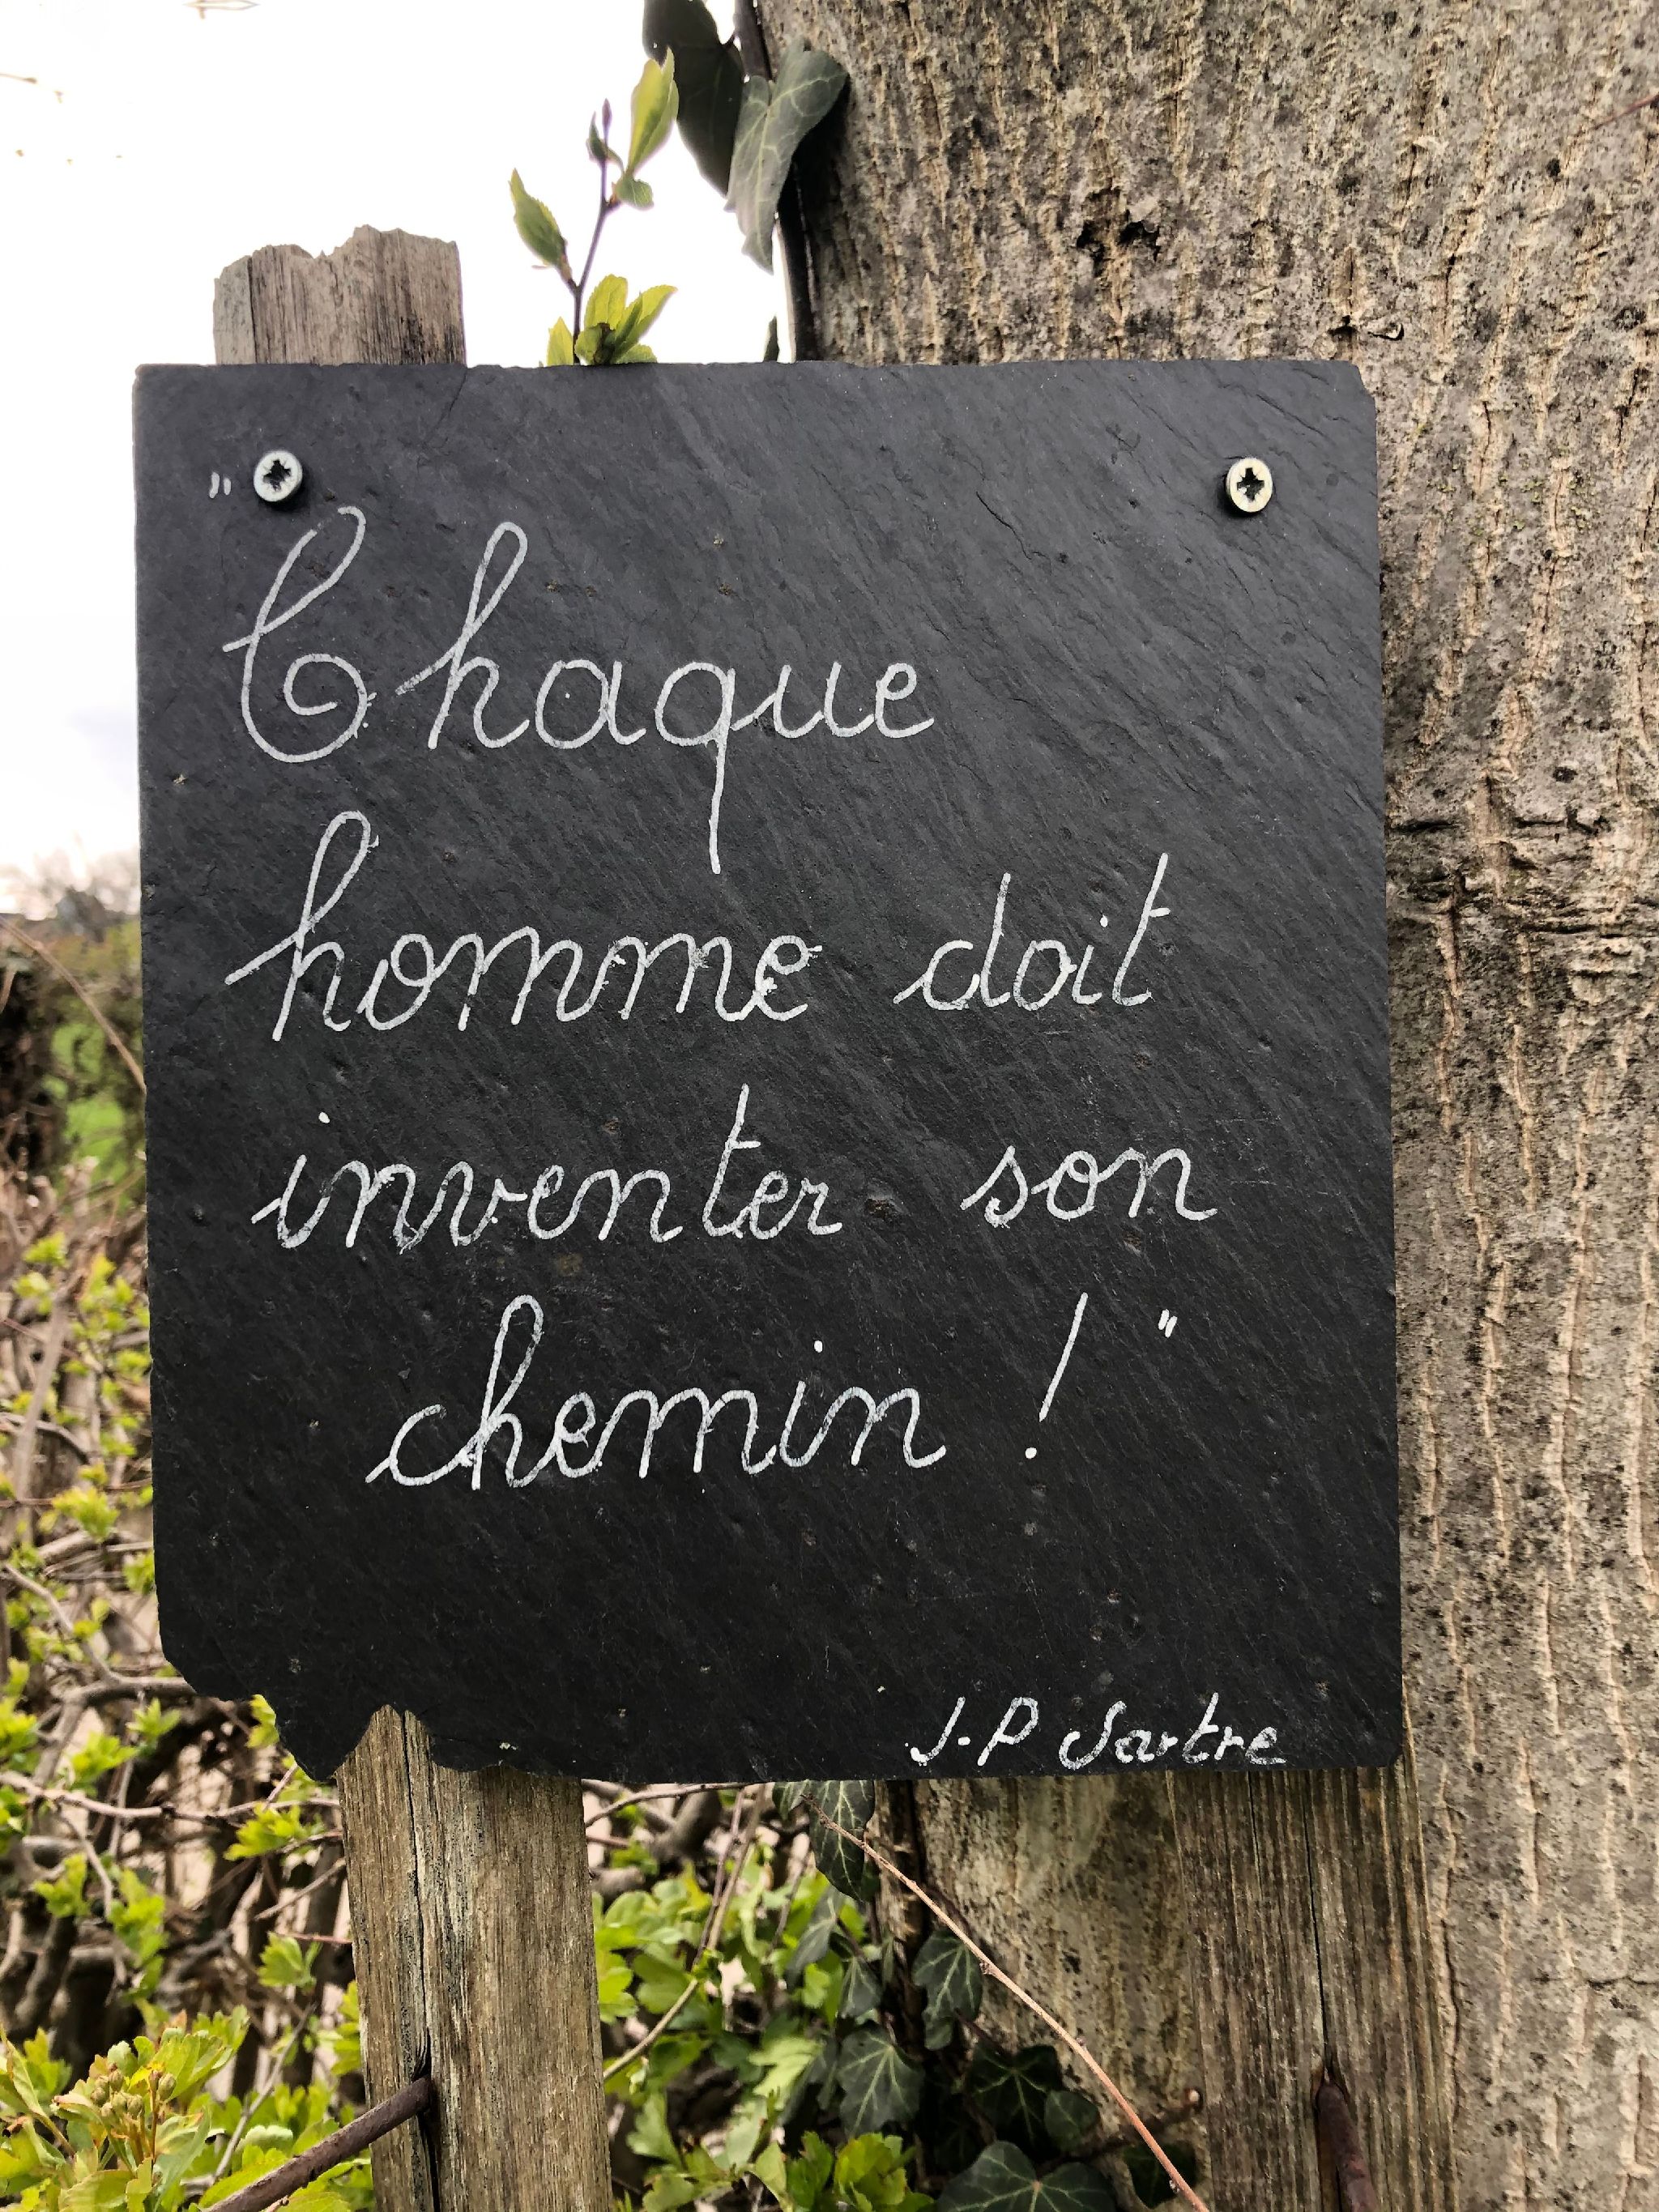 " Chaque
homme doit
inventer son
chemin ! "
J-P Sartre